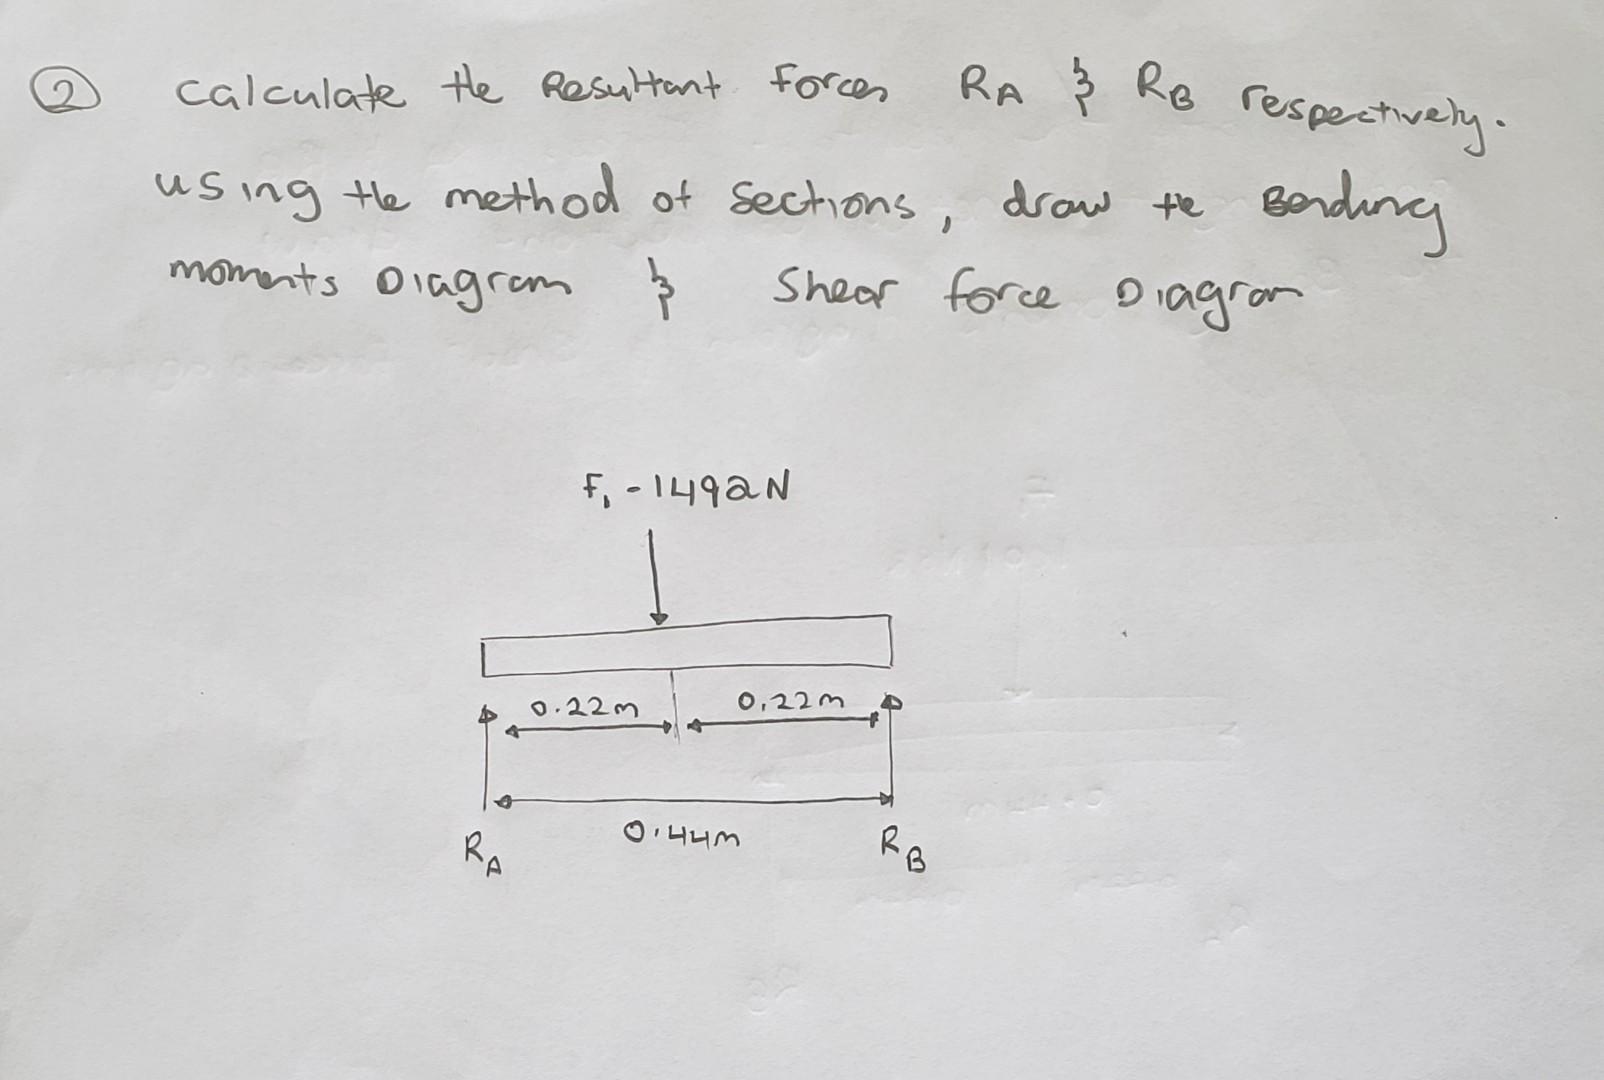 2 Calculate the Resultant forces RA & RB respectively.
using the method of Sections, draw the Bending
moments Diagram & Shear force Diagram
F1 - 1492N
0.22m 0.22m
0.44m
RA RB